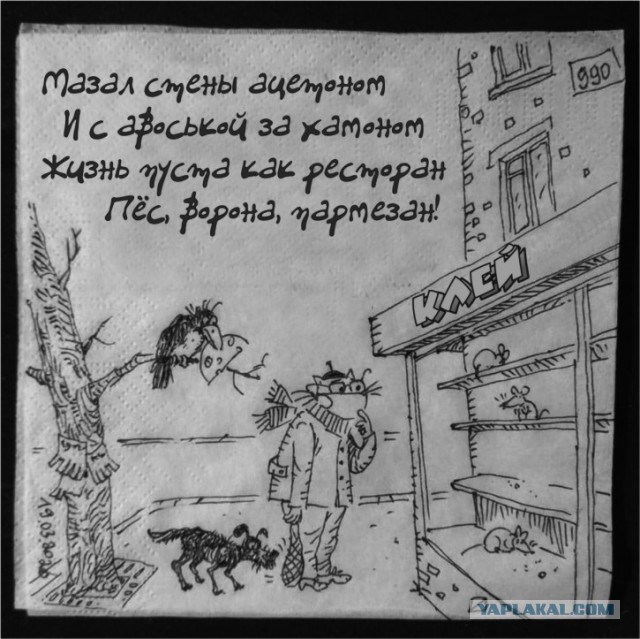 Мазал стены ацетоном
И с авоськой за хамоном
Жизнь пуста как ресторан
Пёс, ворона, пармезан!
990
КЛЕЙ
19.03.2020
YAPLAKAL.COM